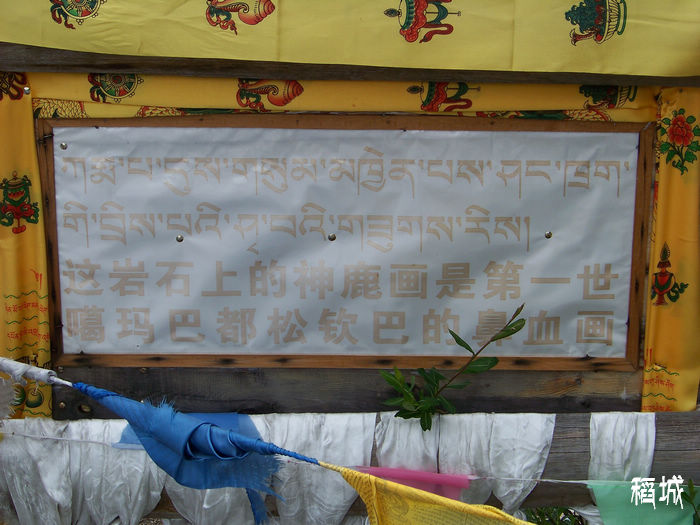 ཀརྨ་པ་དུས་གསུམ་མཁྱེན་པས་ཤང་ཁྲག་
གི་བྲིས་པའི་ཤྭ་བའི་གཟུགས་རིས།
这岩石上的神鹿画是第一世
噶玛巴都松钦巴的鼻血画
稻城